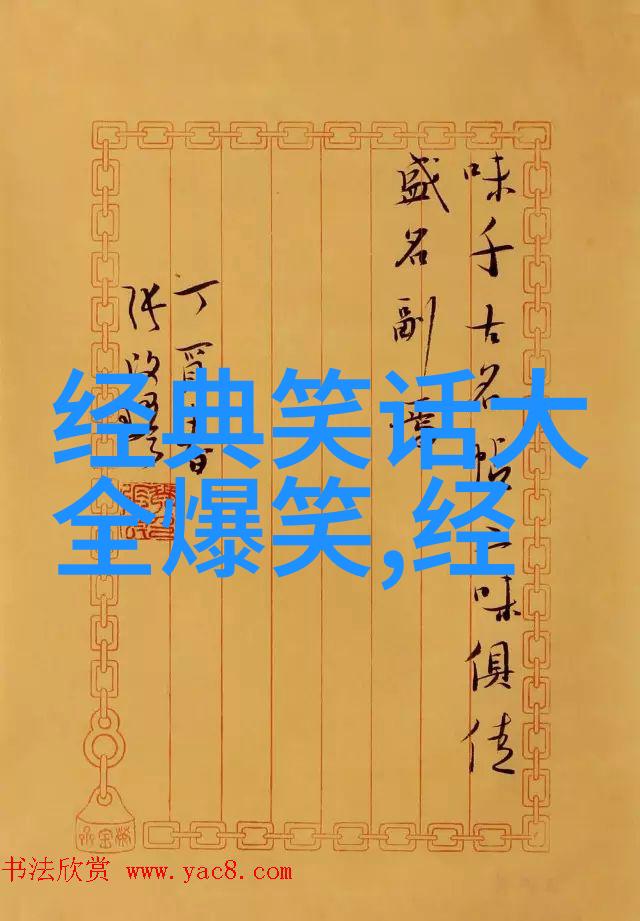 味千古名帖味俱佳
盛名副
丁酉春
張
经典笑话大
全爆笑,经
书法欣赏 www.yac8.com